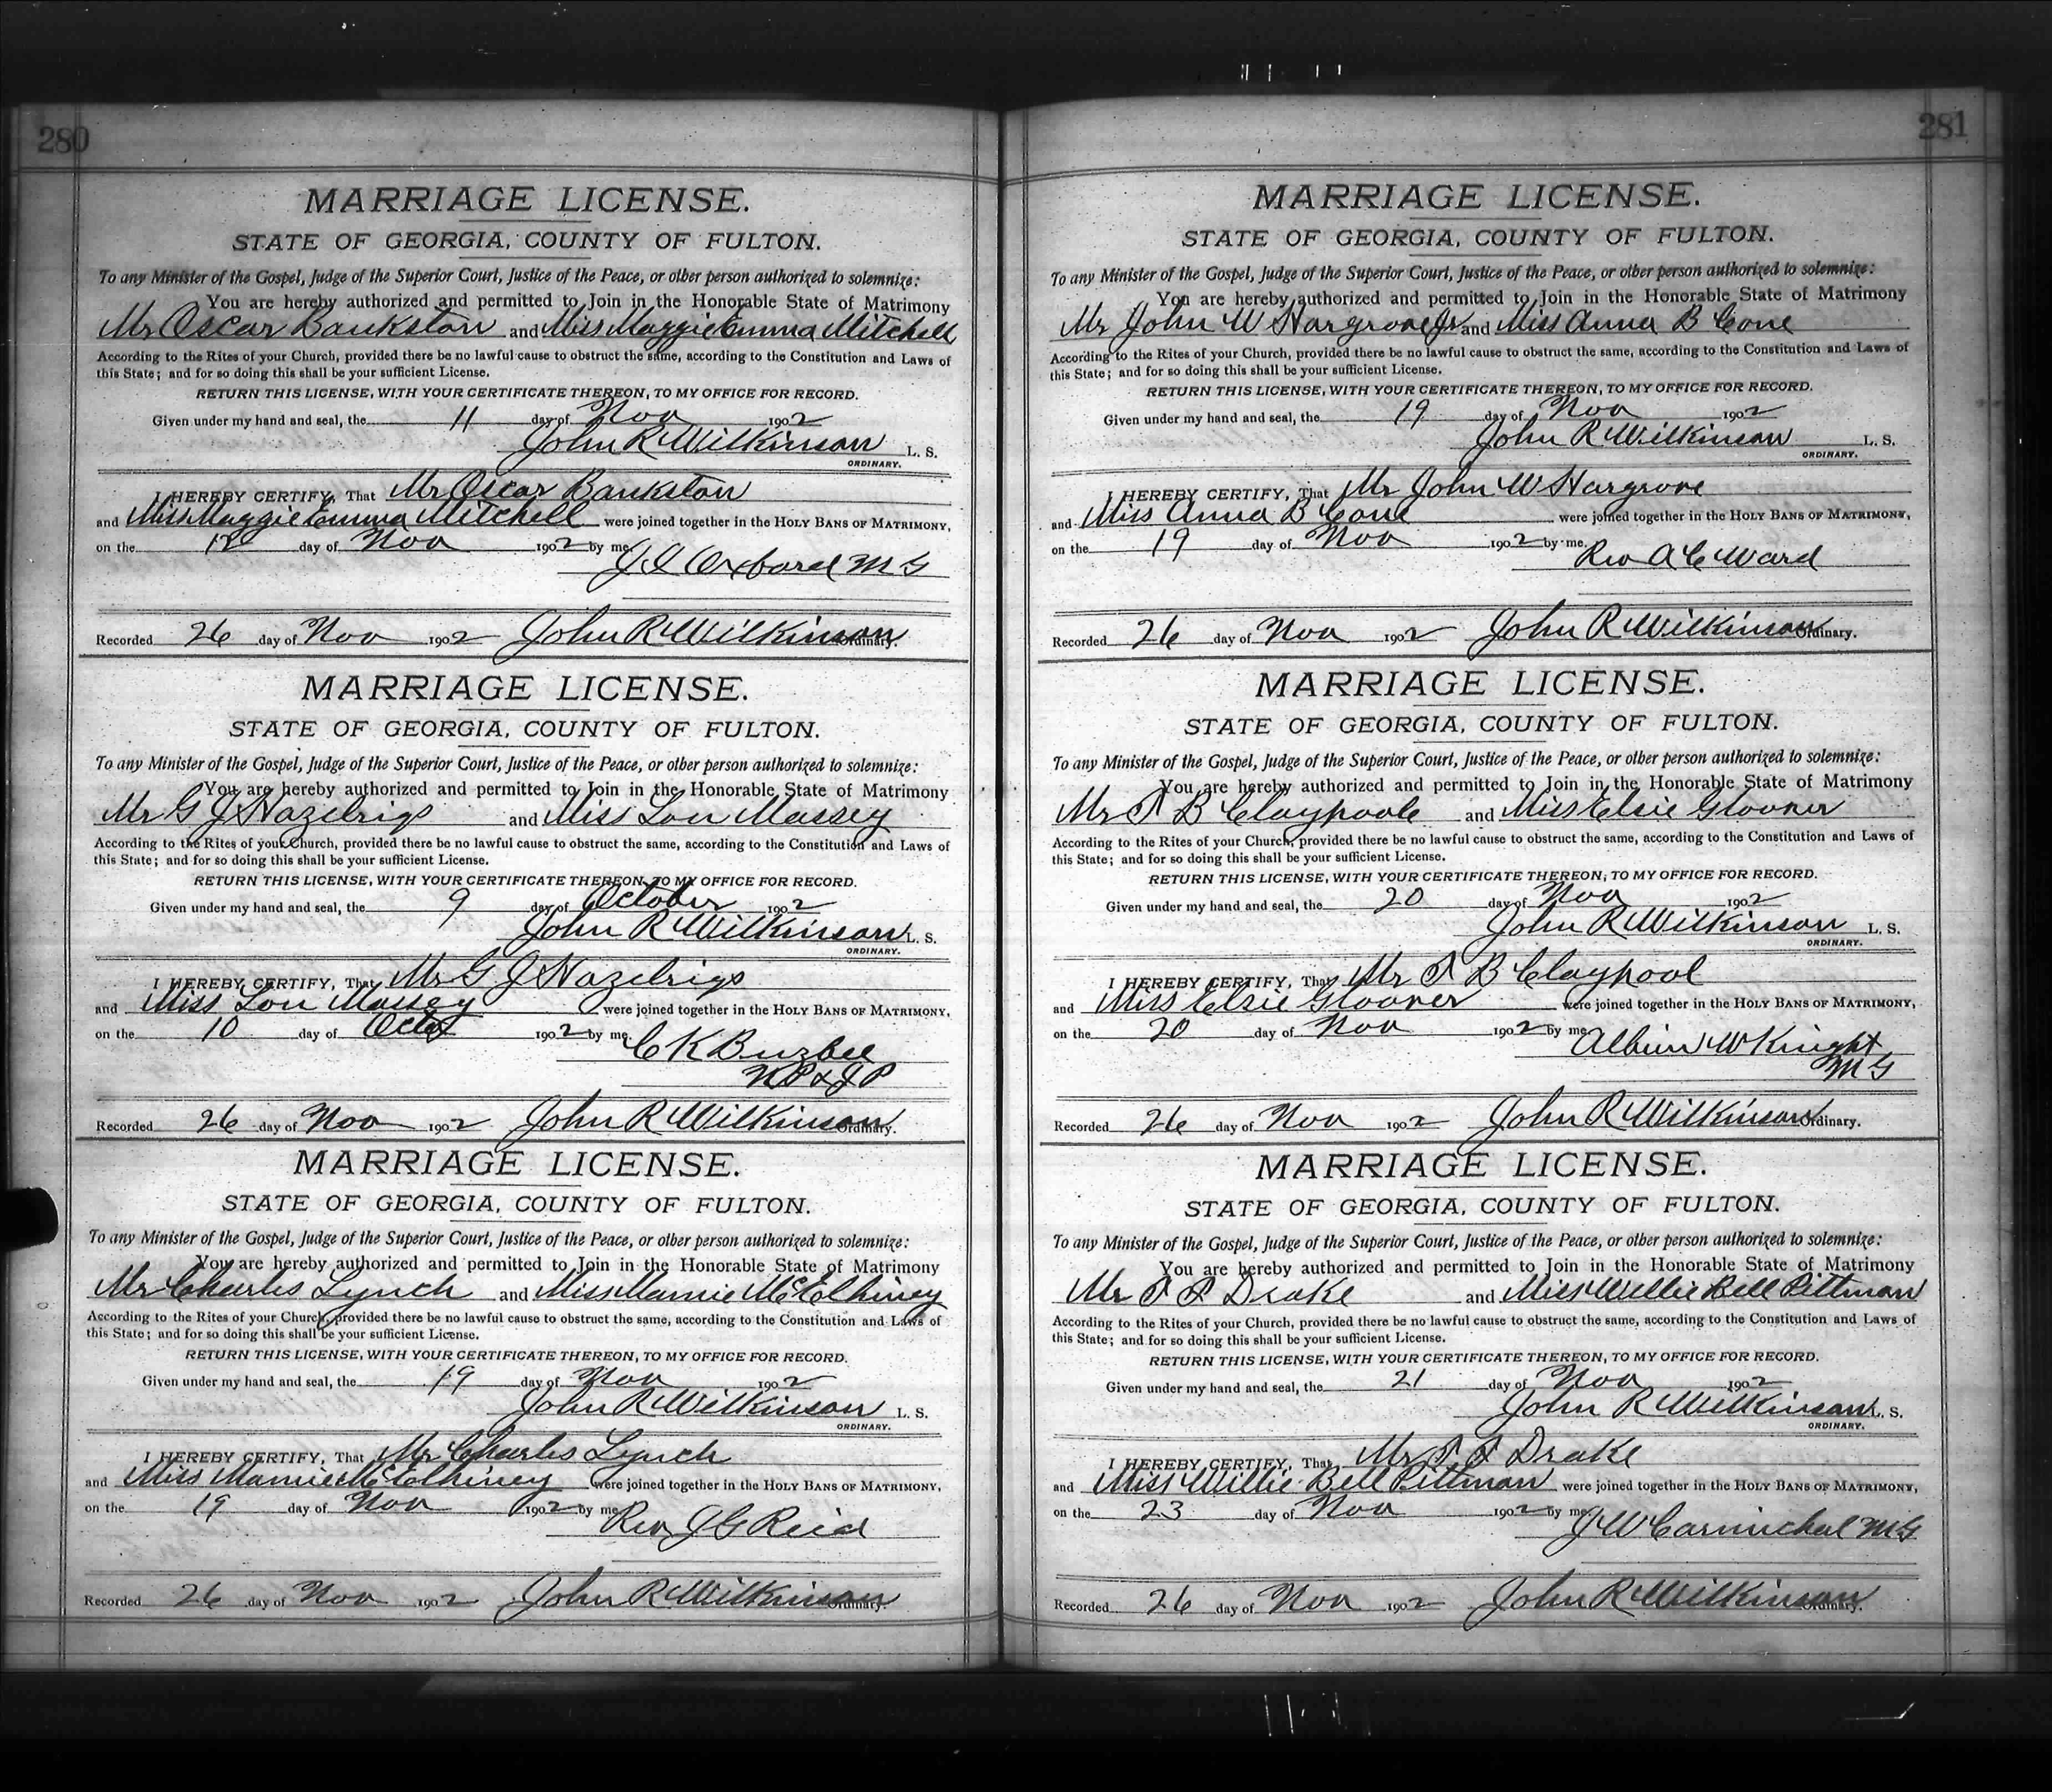 280
MARRIAGE LICENSE.
STATE OF GEORGIA, COUNTY OF FULTON.
To any Minister of the Gospel, Judge of the Superior Court, Justice of the Peace, or other person authorized to solemnize:
You are hereby authorized and permitted to Join in the Honorable State of Matrimony
Mr Oscar Bankston and Miss Maggie Emma Mitchell
According to the Rites of your Church, provided there be no lawful cause to obstruct the same, according to the Constitution and Laws of
this State; and for so doing this shall be your sufficient License.
RETURN THIS LICENSE, WITH YOUR CERTIFICATE THEREON, TO MY OFFICE FOR RECORD.
Given under my hand and seal, the 11 day of Nov 1902
John R Wilkinson L. S.
ORDINARY.
I HEREBY CERTIFY, That Mr Oscar Bankston
and Miss Maggie Emma Mitchell were joined together in the HOLY BANS OF MATRIMONY,
on the 12 day of Nov 1902 by me
J I Oxford M G
Recorded 26 day of Nov 1902 John R Wilkinson Ordinary.
MARRIAGE LICENSE.
STATE OF GEORGIA, COUNTY OF FULTON.
To any Minister of the Gospel, Judge of the Superior Court, Justice of the Peace, or other person authorized to solemnize:
You are hereby authorized and permitted to Join in the Honorable State of Matrimony
Mr G J Hazelrigs and Miss Lou Massey
According to the Rites of your Church, provided there be no lawful cause to obstruct the same, according to the Constitution and Laws of
this State; and for so doing this shall be your sufficient License.
RETURN THIS LICENSE, WITH YOUR CERTIFICATE THEREON, TO MY OFFICE FOR RECORD.
Given under my hand and seal, the 9 day of October 1902
John R Wilkinson L. S.
ORDINARY.
I HEREBY CERTIFY, That Mr G J Hazelrigs
and Miss Lou Massey were joined together in the HOLY BANS OF MATRIMONY,
on the 10 day of Octo 1902 by me
C K Buzbee
N P & J P
Recorded 26 day of Nov 1902 John R Wilkinson Ordinary.
MARRIAGE LICENSE.
STATE OF GEORGIA, COUNTY OF FULTON.
To any Minister of the Gospel, Judge of the Superior Court, Justice of the Peace, or other person authorized to solemnize:
You are hereby authorized and permitted to Join in the Honorable State of Matrimony
Mr Charles Lynch and Miss Mamie McElhiney
According to the Rites of your Church, provided there be no lawful cause to obstruct the same, according to the Constitution and Laws of
this State; and for so doing this shall be your sufficient License.
RETURN THIS LICENSE, WITH YOUR CERTIFICATE THEREON, TO MY OFFICE FOR RECORD.
Given under my hand and seal, the 19 day of Nov 1902
John R Wilkinson L. S.
ORDINARY.
I HEREBY CERTIFY, That Mr Charles Lynch
and Miss Mamie McElhiney were joined together in the HOLY BANS OF MATRIMONY,
on the 19 day of Nov 1902 by me
Rev J G Reid
Recorded 26 day of Nov 1902 John R Wilkinson Ordinary.
281
MARRIAGE LICENSE.
STATE OF GEORGIA, COUNTY OF FULTON.
To any Minister of the Gospel, Judge of the Superior Court, Justice of the Peace, or other person authorized to solemnize:
You are hereby authorized and permitted to Join in the Honorable State of Matrimony
Mr John W Hargrove Jr and Miss Anna B Cone
According to the Rites of your Church, provided there be no lawful cause to obstruct the same, according to the Constitution and Laws of
this State; and for so doing this shall be your sufficient License.
RETURN THIS LICENSE, WITH YOUR CERTIFICATE THEREON, TO MY OFFICE FOR RECORD.
Given under my hand and seal, the 19 day of Nov 1902
John R Wilkinson L. S.
ORDINARY.
I HEREBY CERTIFY, That Mr John W Hargrove
and Miss Anna B Cone were joined together in the HOLY BANS OF MATRIMONY,
on the 19 day of Nov 1902 by me.
Rev A C Ward
Recorded 26 day of Nov 1902 John R Wilkinson Ordinary.
MARRIAGE LICENSE.
STATE OF GEORGIA, COUNTY OF FULTON.
To any Minister of the Gospel, Judge of the Superior Court, Justice of the Peace, or other person authorized to solemnize:
You are hereby authorized and permitted to Join in the Honorable State of Matrimony
Mr T B Claypoole and Miss Elsie Gloover
According to the Rites of your Church, provided there be no lawful cause to obstruct the same, according to the Constitution and Laws of
this State; and for so doing this shall be your sufficient License.
RETURN THIS LICENSE, WITH YOUR CERTIFICATE THEREON, TO MY OFFICE FOR RECORD.
Given under my hand and seal, the 20 day of Nov 1902
John R Wilkinson L. S.
ORDINARY.
I HEREBY CERTIFY, That Mr T B Claypool
and Miss Elsie Gloover were joined together in the HOLY BANS OF MATRIMONY,
on the 20 day of Nov 1902 by me
Albin W Knight
M G
Recorded 26 day of Nov 1902 John R Wilkinson Ordinary.
MARRIAGE LICENSE.
STATE OF GEORGIA, COUNTY OF FULTON.
To any Minister of the Gospel, Judge of the Superior Court, Justice of the Peace, or other person authorized to solemnize:
You are hereby authorized and permitted to Join in the Honorable State of Matrimony
Mr T P Drake and Miss Willie Bell Pittman
According to the Rites of your Church, provided there be no lawful cause to obstruct the same, according to the Constitution and Laws of
this State; and for so doing this shall be your sufficient License.
RETURN THIS LICENSE, WITH YOUR CERTIFICATE THEREON, TO MY OFFICE FOR RECORD.
Given under my hand and seal, the 21 day of Nov 1902
John R Wilkinson L. S.
ORDINARY.
I HEREBY CERTIFY, That Mr T P Drake
and Miss Willie Bell Pittman were joined together in the HOLY BANS OF MATRIMONY,
on the 23 day of Nov 1902 by me
J W Carmichal M G
Recorded 26 day of Nov 1902 John R Wilkinson Ordinary.